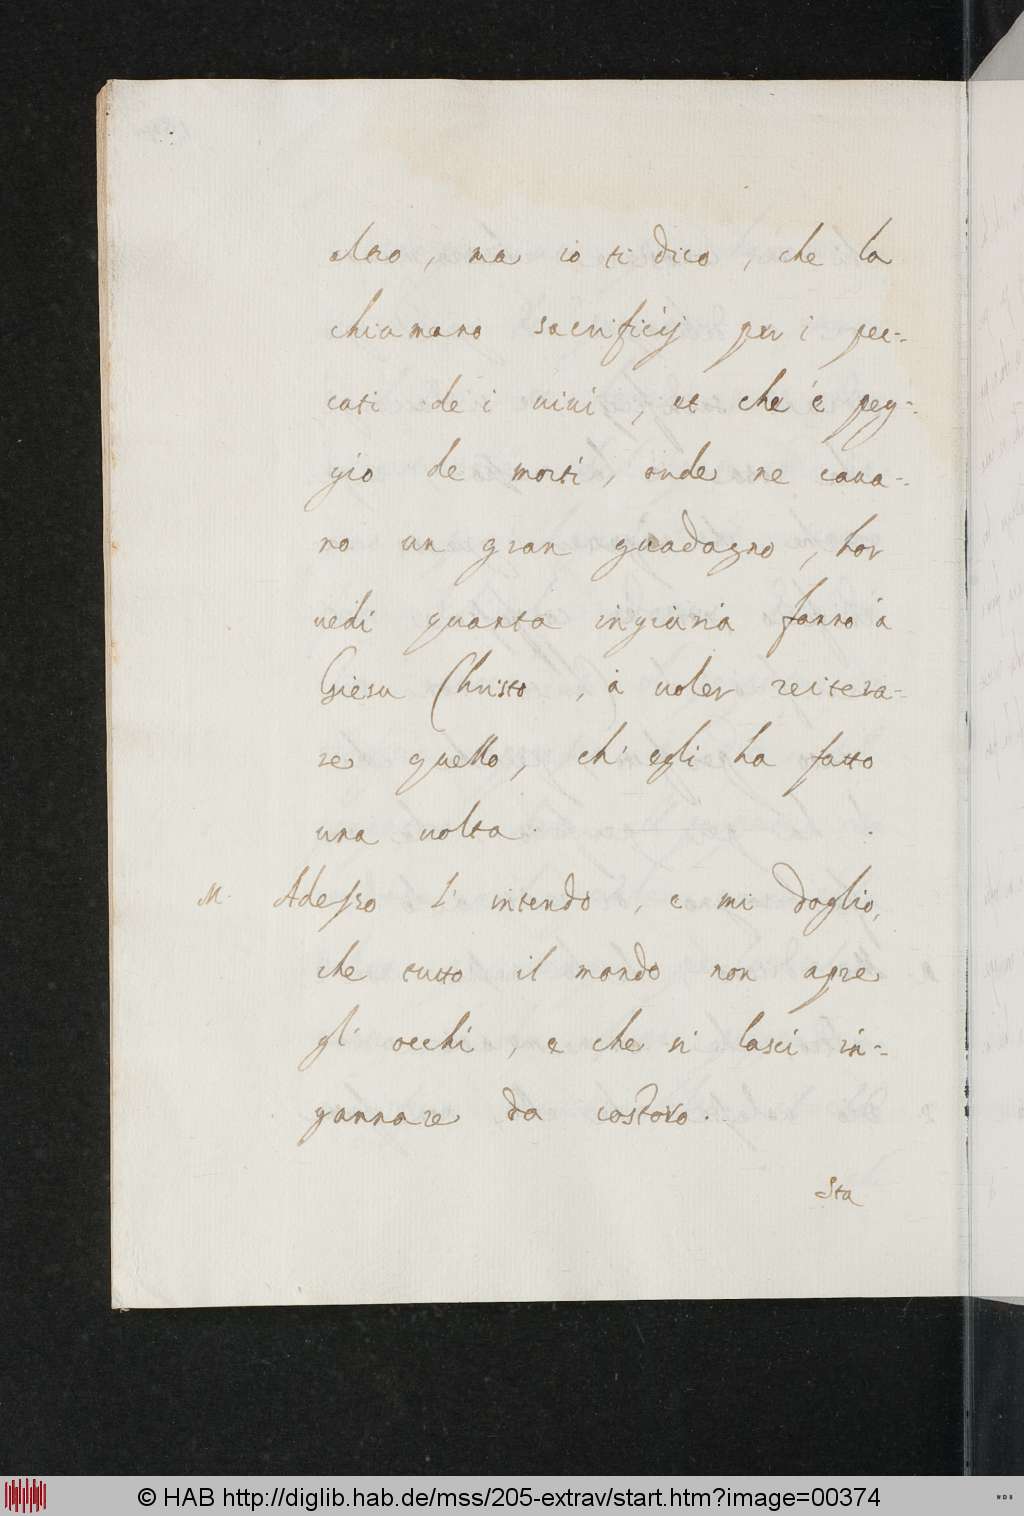 altro, ma io ti dico, che la
chiamano sacrificij per i pec-
cati de i uiui, et che è peg-
gio de morti, onde ne caua-
no un gran guadagno, hor
uedi quanta ingiuria fanno à
Giesu Christo, à uoler reitera-
re quello, ch' egli ha fatto
una uolta.
M. Adesso l' intendo, e mi doglio,
che tutto il mondo non apre
gl' occhi, e che si lasci in-
gannare da costoro.
Sta
© HAB http://diglib.hab.de/mss/205-extrav/start.htm?image=00374